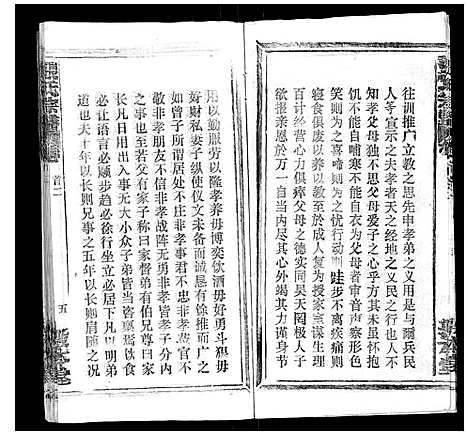 往訓推广立教之思先申孝弟之义用是与爾兵民
人等宣示之夫孝者天之經地之义民之行也人不
知孝父母獨不思父母爱子之心乎方其未离怀抱
饥不能自哺寒不能自衣为父母者审音声察形色
笑则为之喜啼则为之忧行动则跬步不离疾痛则
寝食俱废以养以教至於成人復为授家室谋生理
百計经营心力俱瘁父母之德实同昊天罔极人子
欲报亲恩於万一自当内尽其心外竭其力谨身节
用以勤服劳以隆孝养毋博奕饮酒毋好勇斗狠毋
好财私妻子纵使仪文未备而诚悫有馀推而广之
如曾子所謂居处不庄非孝事君不忠非孝莅官不
敬非孝朋友不信非孝战阵无勇非孝皆孝子分内
之事也至若父有冢子称曰家督弟有伯兄尊曰家
長凡日用出入事无大小众子弟皆当咨禀焉饮食
必让语言必顺步趋必徐行坐立必居下凡以明弟
道也夫十年以長则兄事之五年以長则肩随之况
首二
五